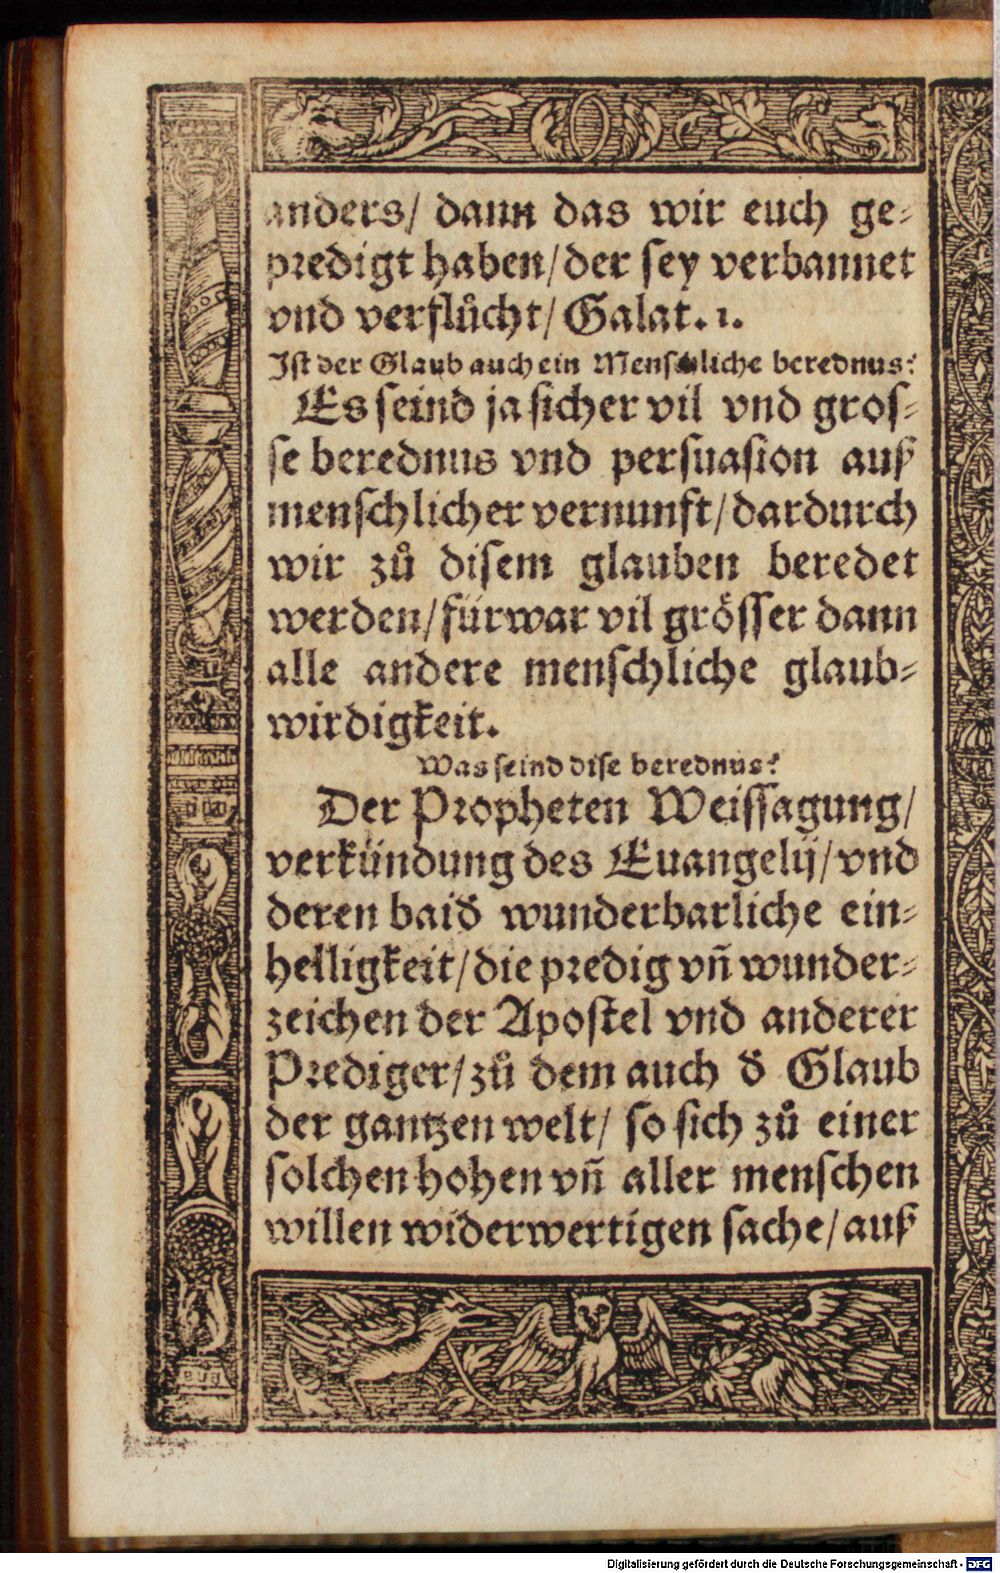 anders/ dann das wir euch ge⸗
predigt haben/ der sey verbannet
vnd verflůcht/ Galat. 1.
Ist der Glaub auch ein Menschliche berednus?
Es seind ja sicher vil vnd gros⸗
se berednus vnd persuasion auß
menschlicher vernunft/ dardurch
wir zů disem glauben beredet
werden/ fürwar vil grösser dann
alle andere menschliche glaub⸗
wirdigkeit.
Was seind dise berednus?
Der Propheten Weissagung/
verkündung des Euangelij/ vnd
deren baid̕ wunderbarliche ein⸗
helligkeit/ die predig vñ wunder⸗
zeichen der Apostel vnd anderer
Prediger/ zů dem auch d̕ Glaub
der gantzen welt/ so sich zů einer
solchen hohen vñ aller menschen
willen widerwertigen sache/ auß
Digitalisierung gefördert durch die Deutsche Forschungsgemeinschaft - DFG